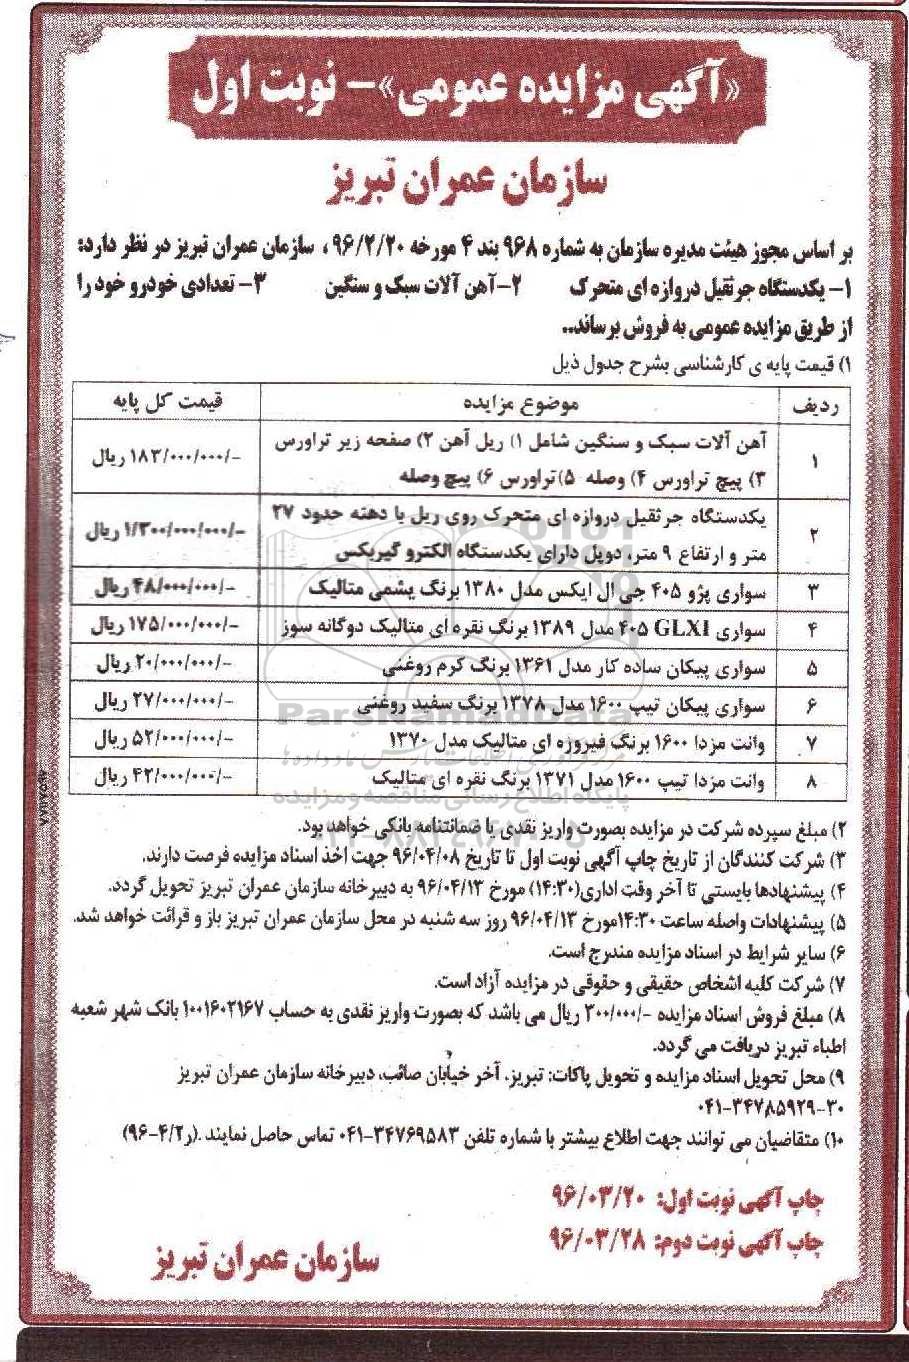 «آگهی مزایده عمومی»- نوبت اول
سازمان عمران تبریز
بر اساس مجوز هیئت مدیره سازمان به شماره ۹۶۸ بند ۴ مورخه ۹۶/۲/۲۰ ، سازمان عمران تبریز در نظر دارد:
۱- یکدستگاه جرثقیل دروازه ای متحرک ۲-آهن آلات سبک و سنگین ۳- تعدادی خودرو خود را
از طریق مزایده عمومی به فروش برساند..
۱) قیمت پایه ی کارشناسی بشرح جدول ذیل
ردیف موضوع مزایده قیمت کل پایه
۱ آهن آلات سبک و سنگین شامل ۱) ریل آهن ۲) صفحه زیر تراورس
۳) پیچ تراورس ۴) وصله ۵)تراورس ۶) پیچ وصله ۱۸۲/۰۰۰/۰۰۰/- ریال
۲ یکدستگاه جرثقیل دروازه ای متحرک روی ریل با دهنه حدود ۲۷
متر و ارتفاع ۹ متر، دوپل دارای یکدستگاه الکترو گیربکس ۱/۳۰۰/۰۰۰/۰۰۰/- ریال
۳ سواری پژو ۴۰۵ جی ال ایکس مدل ۱۳۸۰ برنگ یشمی متالیک ۴۸/۰۰۰/۰۰۰/- ریال
۴ سواری GLXI ۴۰۵ مدل ۱۳۸۹ برنگ نقره ای متالیک دوگانه سوز ۱۷۵/۰۰۰/۰۰۰/- ریال
۵ سواری پیکان ساده کار مدل ۱۳۶۱ برنگ کرم روغنی ۲۰/۰۰۰/۰۰۰/- ریال
۶ سواری پیکان تیپ ۱۶۰۰ مدل ۱۳۷۸ برنگ سفید روغنی ۲۷/۰۰۰/۰۰۰/- ریال
۷ وانت مزدا ۱۶۰۰ برنگ فیروزه ای متالیک مدل ۱۳۷۰ ۵۲/۰۰۰/۰۰۰/- ریال
۸ وانت مزدا تیپ ۱۶۰۰ مدل ۱۳۷۱ برنگ نقره ای متالیک ۴۲/۰۰۰/۰۰۰/- ریال
ParsNamadData
پایگاه اطلاع رسانی مناقصه و مزایده
۲) مبلغ سپرده شرکت در مزایده بصورت واریز نقدی یا ضمانتنامه بانکی خواهد بود.
۳) شرکت کنندگان از تاریخ چاپ آگهی نوبت اول تا تاریخ ۹۶/۰۴/۰۸ جهت اخذ اسناد مزایده فرصت دارند.
۴) پیشنهادها بایستی تا آخر وقت اداری(۱۴:۳۰) مورخ ۹۶/۰۴/۱۲ به دبیرخانه سازمان عمران تبریز تحویل گردد.
۵) پیشنهادات واصله ساعت ۱۴:۳۰مورخ ۹۶/۰۴/۱۳ روز سه شنبه در محل سازمان عمران تبریز باز و قرائت خواهد شد.
۶) سایر شرایط در اسناد مزایده مندرج است.
۷) شرکت کلیه اشخاص حقیقی و حقوقی در مزایده آزاد است.
۸) مبلغ فروش اسناد مزایده -/۳۰۰/۰۰۰ ریال می باشد که بصورت واریز نقدی به حساب ۱۰۰۱۶۰۲۱۶۷ بانک شهر شعبه
اطباء تبریز دریافت می گردد.
۹) محل تحویل اسناد مزایده و تحویل پاکات: تبریز، آخر خیابان صائب، دبیرخانه سازمان عمران تبریز
۰۴۱-۳۴۷۸۵۹۲۹-۳۰
۱۰) متقاضیان می توانند جهت اطلاع بیشتر با شماره تلفن ۳۴۷۶۹۵۸۳-۰۴۱ تماس حاصل نمایند .(ر۴/۲-۹۶)
چاپ آگهی نوبت اول: ۹۶/۰۳/۲۰
چاپ آگهی نوبت دوم: ۹۶/۰۳/۲۸
سازمان عمران تبریز